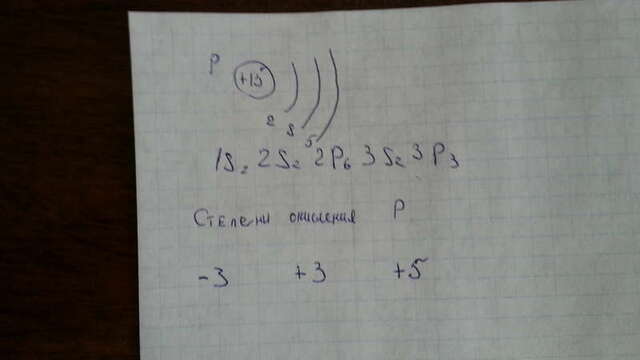 P +15
2 8 5
1S₂ 2S₂ 2P₆ 3S₂ 3P₃
Степени окисления P
-3 +3 +5